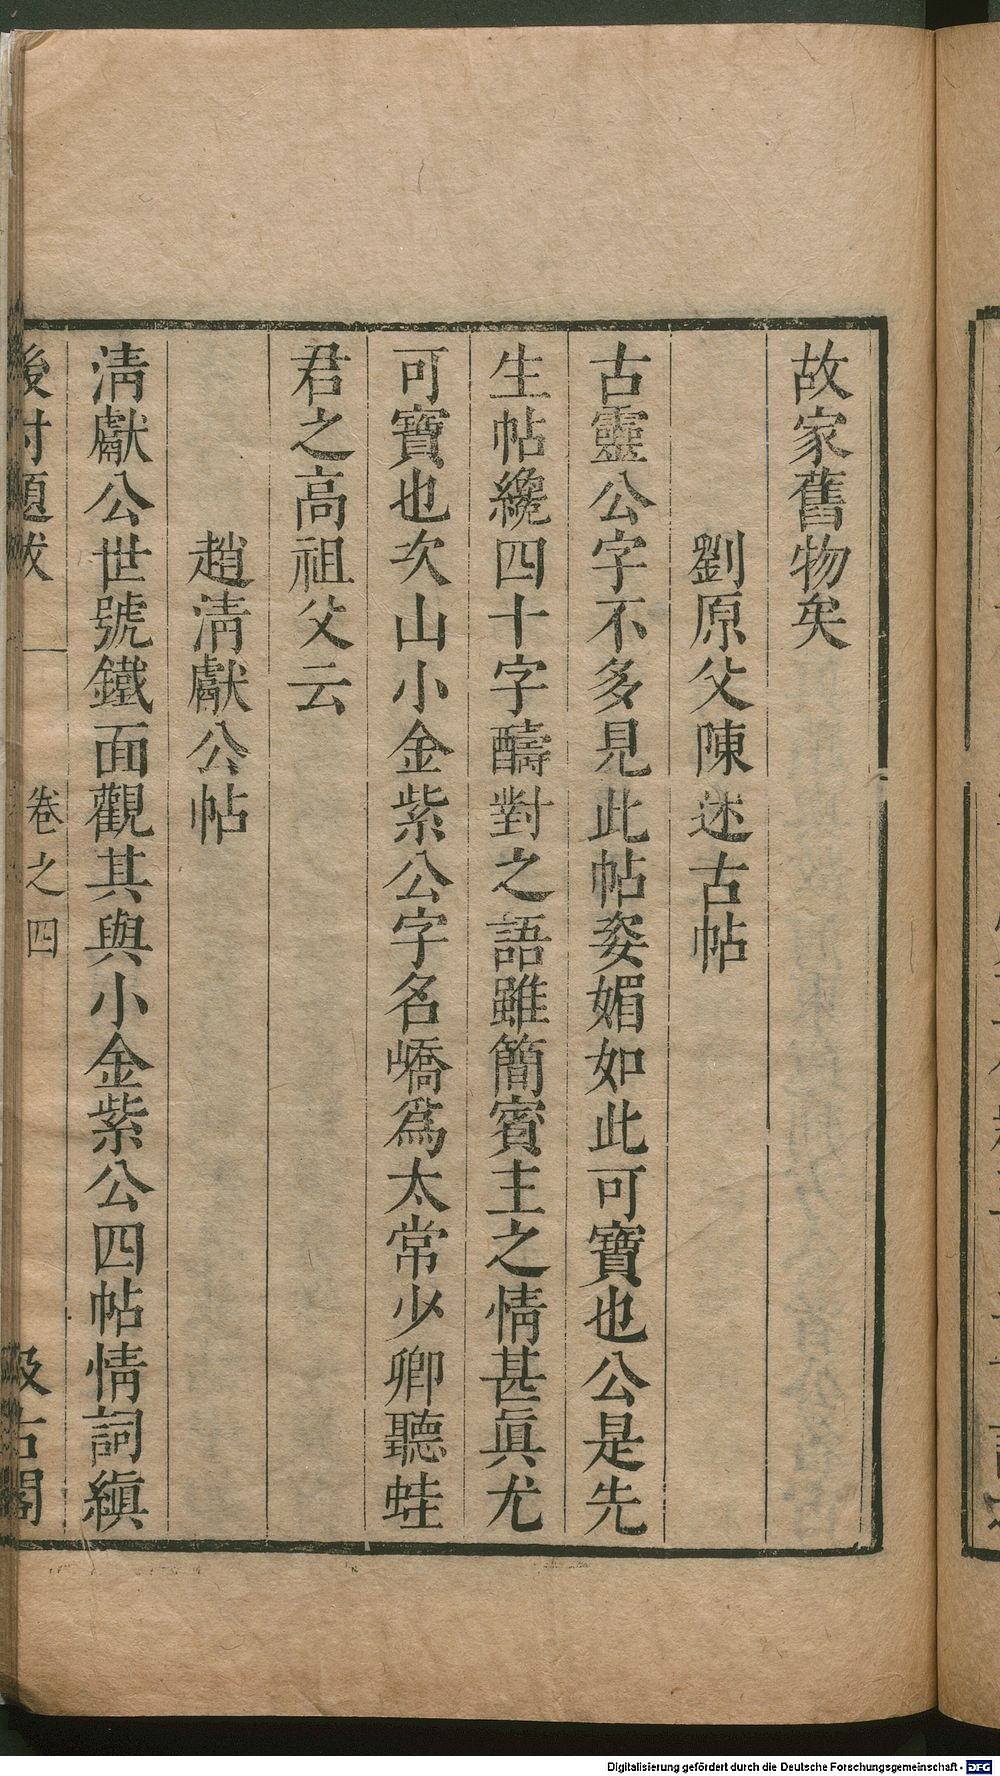 故家舊物矣
劉原父陳述古帖
古靈公字不多見此帖姿媚如此可寶也公是先
生帖纔四十字醻對之語雖簡賓主之情甚眞尤
可寶也次山小金紫公字名嶠爲太常少卿聽蛙
君之高祖父云
趙淸獻公帖
淸獻公世號鐵面觀其與小金紫公四帖情詞縝
後村題跋
卷之四
汲古閣
Digitalisierung gefördert durch die Deutsche Forschungsgemeinschaft - DFG